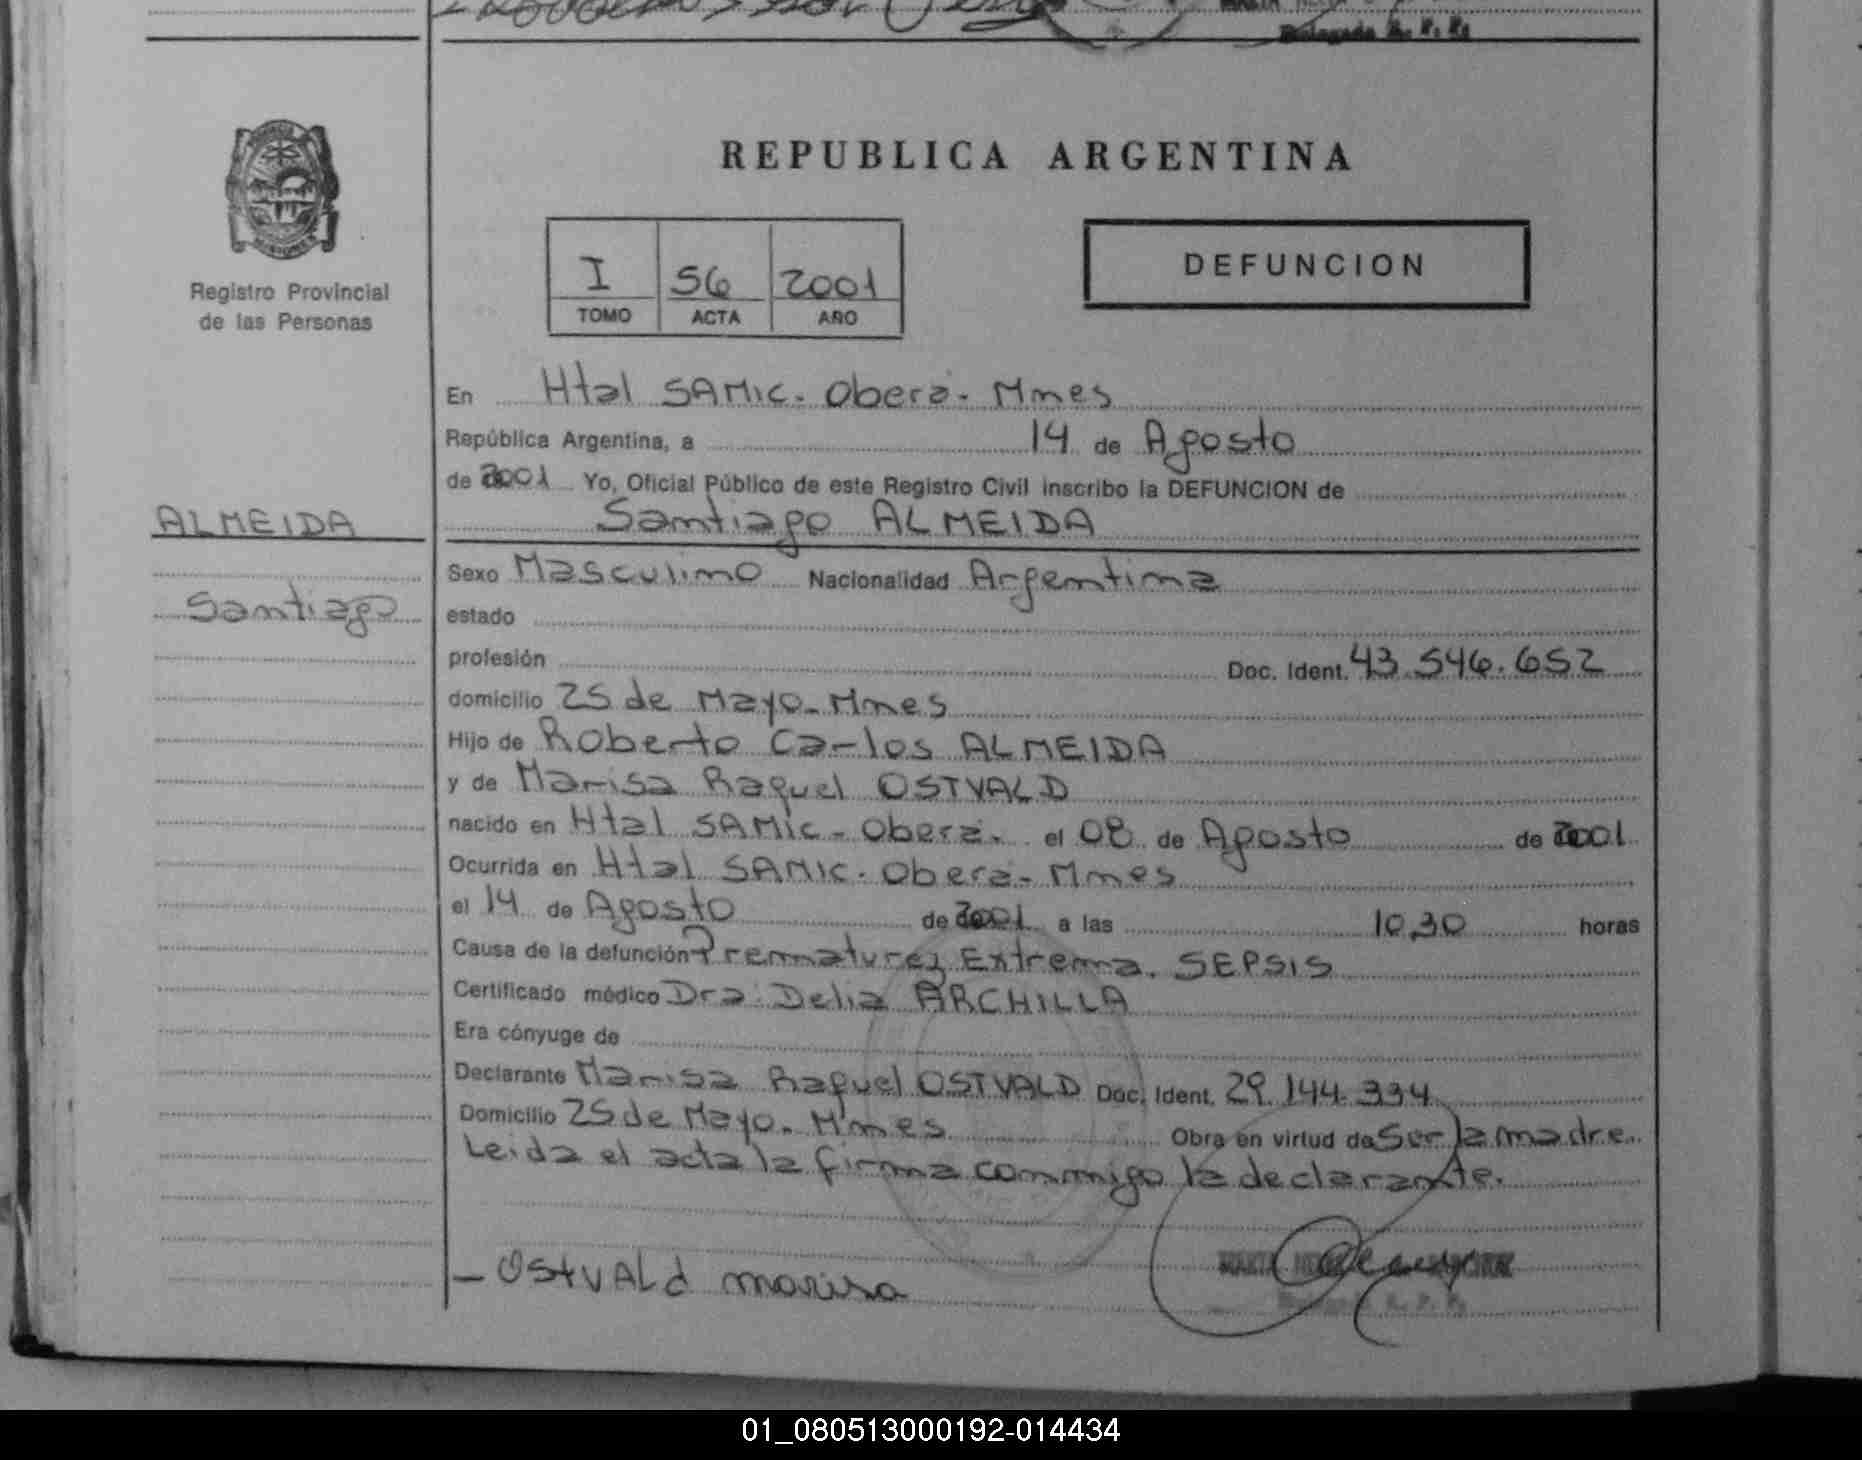 Delegada R. P. P.
REPUBLICA ARGENTINA
MISIONES
Registro Provincial
de las Personas
I 56 2001
TOMO ACTA AÑO
DEFUNCION
En Htal SAMIC. Oberá. Mnes
República Argentina, a 14 de Agosto
de 2001 Yo, Oficial Público de este Registro Civil inscribo la DEFUNCION de
Santiago ALMEIDA
ALMEIDA
Santiago
Sexo Masculino Nacionalidad Argentina
estado
profesión Doc. Ident. 43.546.652
domicilio 25 de Mayo. Mnes
Hijo de Roberto Carlos ALMEIDA
y de Marisa Raquel OSTVALD
nacido en Htal SAMIC. Oberá. el 08 de Agosto de 2001
Ocurrida en Htal SAMIC. Oberá. Mnes
el 14 de Agosto de 2001 a las 10,30 horas
Causa de la defunción Prematurez Extrema. SEPSIS
Certificado médico Dra. Delia ARCHILLA
Era cónyuge de
Declarante Marisa Raquel OSTVALD Doc. Ident. 29.144.334
Domicilio 25 de Mayo. Mnes Obra en virtud de Ser la madre.
Leida el acta la firma conmigo la declarante.
- OstvALd marisa
01_080513000192-014434